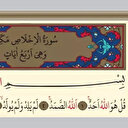 سُورَةُ الْإِخْلَاصِ مَكِّ
وَهِيَ أَرْبَعُ آيَاتٍ
بِسْمِ
قُلْ هُوَ اللَّهُ أَحَدٌ اللَّهُ الصَّمَدُ لَمْ يَلِدْ وَلَمْ يُولَدْ